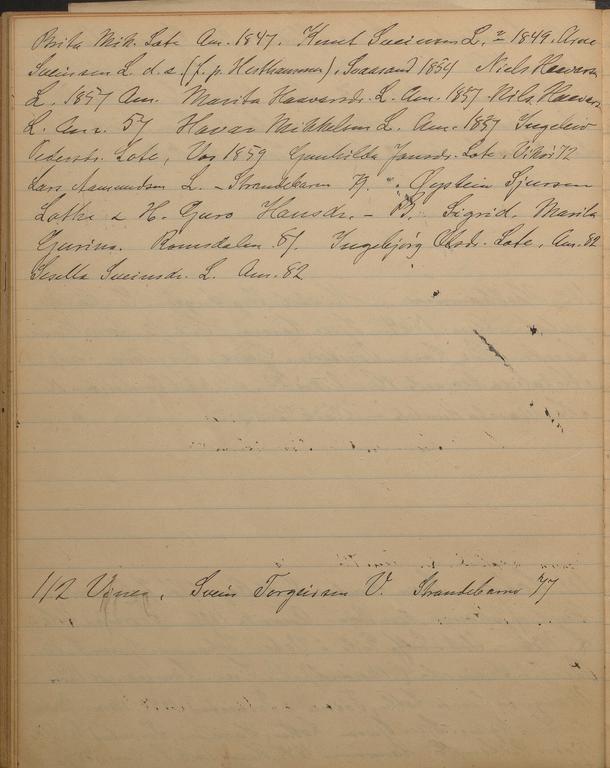 Brita Mik. Lote Am. 1847. Knut Sveinsen L. 1849. Arne
Sveinsen L. d.s. (f. p. Hesthammer), Svaasand 1854 Niels Haavars
L. 1857 Am. Marita Haavarsdr. L. Am. 1857 Nils Haavars
L. Am. 57 Havar Mikkelsen L. Am. 1857 Ingeleiv
Pedersdr. Lote, Vos 1859 Gunhilda Jonsdr. Lote, Vikör 72
Lars Aamundsen L. – Strandebarm 79. " Øystein Sjursen
Lothe & H. Guro Hansdr. – Sigrid, Marita
Gurina. Romsdalen. 81. Ingebjörg Olsdr. Lote, Am. 82
Gesella Sveinsdr. L. Am. 82
112 Vines, Svein Torgeirsen V. Strandebarm 77